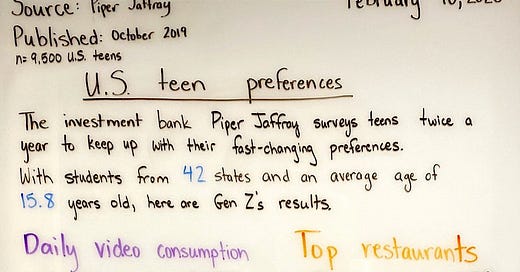 Source: Piper Jaffray
Published: October 2019
n= 9,500 U.S. teens
U.S. teen preferences
The investment bank Piper Jaffray surveys teens twice a
year to keep up with their fast-changing preferences.
With students from 42 states and an average age of
15.8 years old, here are Gen Z's results.
Daily video consumption
Top restaurants